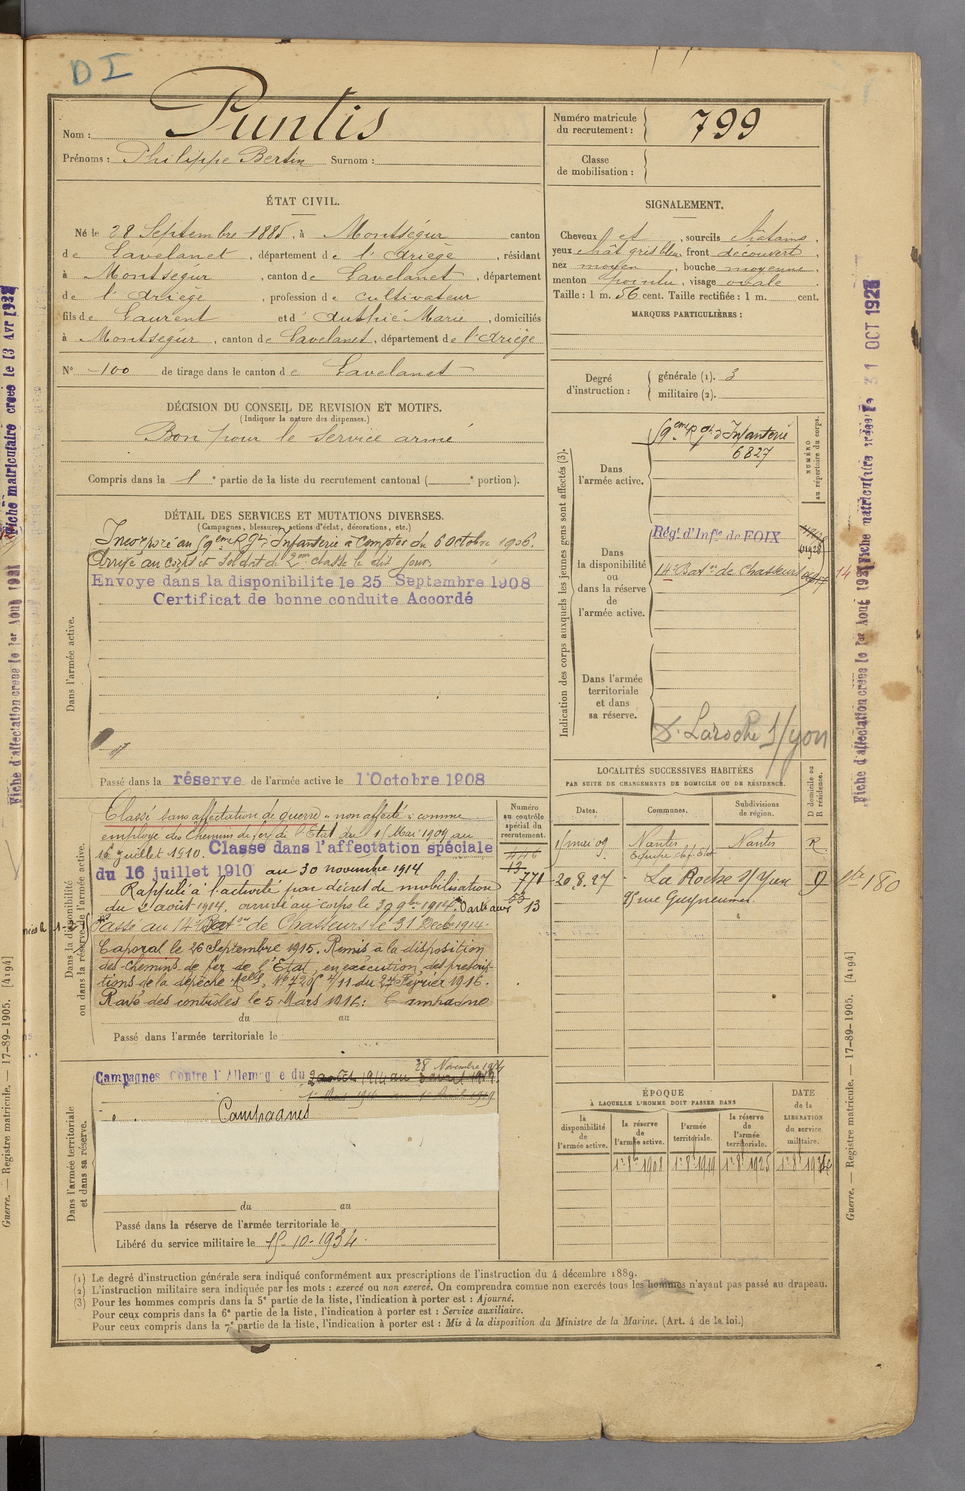 D I
Nom : Puntis
Prénoms : Philippe Bertin Surnom :
Numéro matricule du recrutement : 799
Classe de mobilisation :
ÉTAT CIVIL.
Né le 28 Septembre 1885, à Montségur canton
de Lavelanet, département de l'Ariège, résidant
à Montségur, canton de Lavelanet, département
de l'Ariège, profession de cultivateur
fils de Laurent et d'Authié Marie, domiciliés
à Montségur, canton de Lavelanet, département de l'Ariège
N° 100 de tirage dans le canton de Lavelanet
SIGNALEMENT.
Cheveux et, sourcils châtains,
yeux chât gris bleu, front découvert,
nez moyen, bouche moyenne,
menton pointu, visage ovale
Taille : 1 m. 56 cent. Taille rectifiée : 1 m. cent.
MARQUES PARTICULIÈRES :
Degré d'instruction :
générale (1). 3
militaire (2).
DÉCISION DU CONSEIL DE REVISION ET MOTIFS.
(Indiquer la nature des dispenses.)
Bon pour le service armé
Compris dans la 1e partie de la liste du recrutement cantonal ( e portion).
DÉTAIL DES SERVICES ET MUTATIONS DIVERSES.
(Campagnes, blessures, actions d'éclat, décorations, etc.)
Dans l'armée active.
Incorporé au 59eme Rgt d'Infanterie à compter du 6 octobre 1906.
Arrivé au corps et soldat de 2me classe le dit jour.
Envoyé dans la disponibilité le 25 Septembre 1908
Certificat de bonne conduite Accordé
Passé dans la réserve de l'armée active le 1 Octobre 1908
Indication des corps auxquels les jeunes gens sont affectés (3).
NUMÉRO au répertoire du corps.
Dans l'armée active.
59eme Rgt d'Infanterie
6827
Dans la disponibilité ou dans la réserve de l'armée active.
Régt d'Infie de FOIX
14e Baton de Chasseurs
Dans l'armée territoriale et dans sa réserve.
S. Laroche S/yon
LOCALITÉS SUCCESSIVES HABITÉES
PAR SUITE DE CHANGEMENTS DE DOMICILE OU DE RÉSIDENCE.
Dates. Communes. Subdivisions de région. D domicile ou R résidence.
1 mai 09 Nantes Nantes R
20.8.27 La Roche s/ Yon D
Dans la disponibilité ou dans la réserve de l'armée active.
Numéro au contrôle spécial du recrutement.
Classé sans affectation de guerre "non affecté" comme
employé des Chemins de fer de l'Etat du 1 Mai 1909 au
15 juillet 1910. Classé dans l'affectation spéciale
du 16 juillet 1910 au 30 novembre 1914
Rappelé à l'activité par décret de mobilisation
du 2 août 1914. arrivé au corps le 30 9bre 1914.
Passé au 14e Baton de Chasseurs le 31 Decbre 1914.
Caporal le 26 Septembre 1915. Remis à la disposition
des chemins de fer de l'Etat en exécution des prescrip-
tions de la dépêche Melle N° 7295 4/11 du 24 Février 1916.
Rayé des contrôles le 5 Mars 1916. Campagne
771
13
du au
Passé dans l'armée territoriale le
Dans l'armée territoriale et dans sa réserve.
28 Novembre
Campagnes Contre l'Allemagne du 2 août 1914 au
Campagnes
du au
Passé dans la réserve de l'armée territoriale le
Libéré du service militaire le 15-10-1934.
ÉPOQUE
À LAQUELLE L'HOMME DOIT PASSER DANS
la disponibilité de l'armée active.
la réserve de l'armée active.
l'armée territoriale.
la réserve de l'armée territoriale.
DATE de la LIBÉRATION du service militaire.
1er 8bre 1908 1er 8bre 1919 1er 8bre 1925
(1) Le degré d'instruction générale sera indiqué conformément aux prescriptions de l'instruction du 4 décembre 1889.
(2) L'instruction militaire sera indiquée par les mots : exercé ou non exercé. On comprendra comme non exercés tous les hommes n'ayant pas passé au drapeau.
(3) Pour les hommes compris dans la 5e partie de la liste, l'indication à porter est : Ajourné.
Pour ceux compris dans la 6e partie de la liste, l'indication à porter est : Service auxiliaire.
Pour ceux compris dans la 7e partie de la liste, l'indication à porter est : Mis à la disposition du Ministre de la Marine. (Art. 4 de la loi.)
Fiche d'affectation créée le 1er Août 1921
Fiche matriculaire créée le 13 Avr
Guerre. — Registre matricule. — 17-89-1905. [4194]
Fiche d'affectation créée le 1er Août 1921
Fiche matriculaire créée le 31 OCT 1927
Guerre. — Registre matricule. — 17-89-1905. [4194]